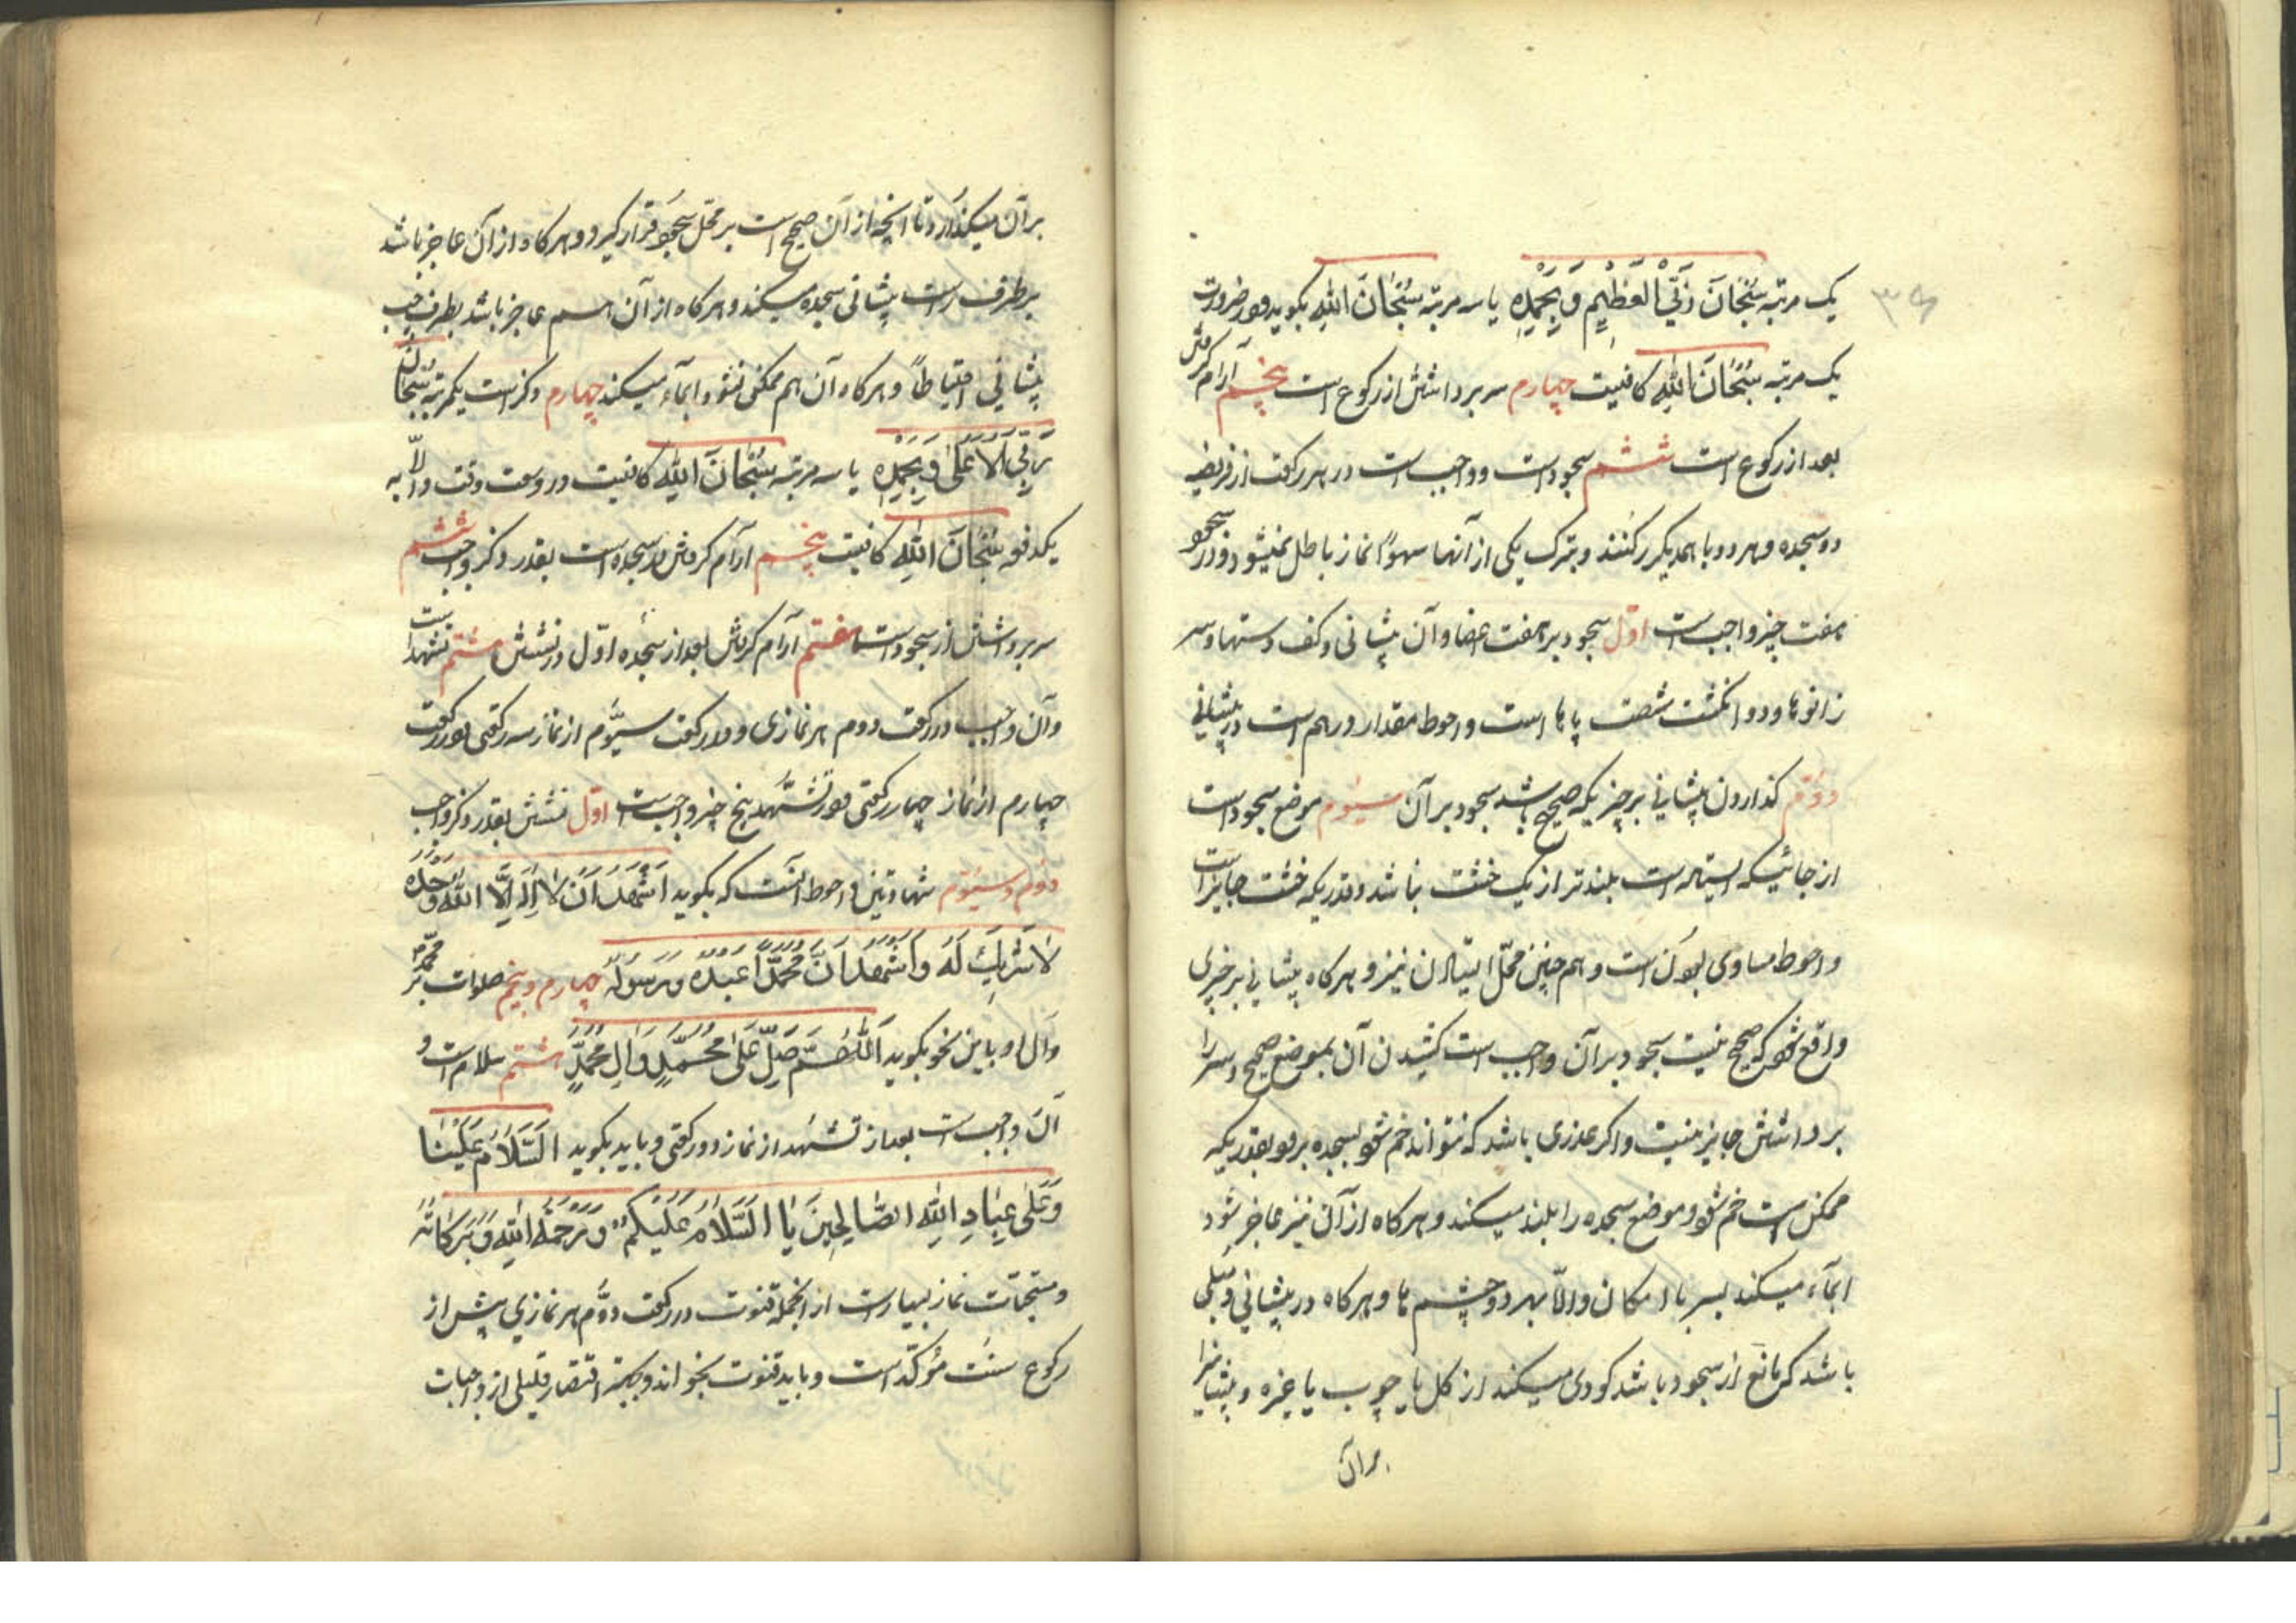 ۳۶
یک مرتبه سُبْحَانَ رَبِّيَ الْعَظِيمِ وَبِحَمْدِهِ یا سه مرتبه سُبْحَانَ اللهِ بکوید ودر ضرورت
یک مرتبه سُبْحَانَ اللهِ کافیست چهارم سر برداشتن از رکوع است پنجم آرام کرفتن
بعد از رکوع است ششم سجود است و واجب است در هر رکعت از فریضه
دو سجده و هر دو با همدیکر رکنند و بترک یکی از آنها سهواً نماز باطل نمیشود و در سجود
هفت چیز واجب است اوّل سجود بر هفت اعضا و آن پیشانی و کف دستها و سر
زانوها و دو انکشت شصت پاها است و احوط مقدار درهم است در پیشانی
دوّم کذاردن پیشانی بر چیزیکه صحیح باشد سجود بر آن سیّوم موضع سجود است
از جائیکه ایستاده است بلندتر از یک خشت نباشد و قدریکه خشت جایز است
و احوط مساوی بودن است و هم چنین محلّ ایستادن نیز و هرکاه پیشانی بر چیزی
واقع شود که صحیح نیست سجود بر آن واجب است کشیدن آن بموضع صحیح و سر را
برداشتن جایز نیست و اکر عذری باشد که نتواند خم شود بسجده برود بقدریکه
ممکن است خم شود و موضع سجده را بلند میکند و هرکاه از آن نیز عاجز شود
ایمآء میکند بسر با امکان والّا بهر دو چشم ها و هرکاه در پیشانی دمّلی
باشد که مانع از سجود باشد کودی میکند از کل یا چوب یا غیره و پیشانیرا
بر آن
بر آن میکذارد تا آنچه از آن صحیح است بر محلّ سجود قرار کیرد و هرکاه از آن عاجز باشد
بر طرف راست پیشانی سجده میکند و هرکاه از آن هم عاجز باشد بطرف چپ
پیشانی احتیاطاً و هرکاه آن هم ممکن نشود ایمآء میکند چهارم ذکر است یکمرتبه سُبْحَانَ
رَبِّيَ الْأَعْلَى وَبِحَمْدِهِ یا سه مرتبه سُبْحَانَ اللهِ کافیست در وسعت وقت والّا به
یکدفعه سُبْحَانَ اللهِ کافیست پنجم آرام کرفتن در سجده است بقدر ذکر واجب ششم
سر برداشتن از سجود است هفتم آرام کرفتن بعد از سجده اوّل در نشستن هشتم تشهد است
و آن واجب در رکعت دوم هر نمازی و در رکعت سیّوم از نماز سه رکعتی و در رکعت
چهارم از نماز چهار رکعتی و در تشهّد پنج چیز واجب است اوّل نشستن بقدر ذکر واجب
دوّم و سیّوم شهادتین و احوط آنست که بکوید اَشْهَدُ اَنْ لَا اِلٰهَ اِلَّا اللهُ وَحْدَهُ
لَا شَرِيكَ لَهُ وَاَشْهَدُ اَنَّ مُحَمَّدًا عَبْدُهُ وَرَسُولُهُ چهارم و پنجم صلوات بر محمّد
و آل او باین نحو بکوید اَللّٰهُمَّ صَلِّ عَلَى مُحَمَّدٍ وَآلِ مُحَمَّدٍ هشتم سلام است و
آن واجب است بعد از تشهد از نماز دو رکعتی و باید بکوید اَلسَّلَامُ عَلَيْنَا
وَعَلَى عِبَادِ اللهِ الصَّالِحِينَ یا اَلسَّلَامُ عَلَيْكُمْ وَرَحْمَةُ اللهِ وَبَرَكَاتُهُ
و مستحبّات نماز بسیار است از انجمله قنوت در رکعت دوّم هر نمازی پیش از
رکوع سنّت مؤکّد است و باید قنوت بخواند و بجهة اقتصار قلیلی از واجبات